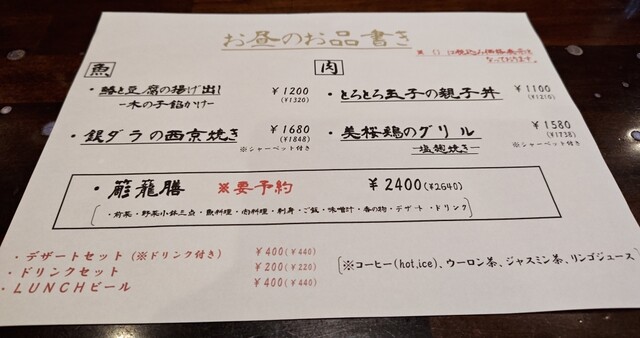 お昼のお品書き
※（）は税込み価格表示となっております。
魚
・鰆と豆腐の揚げ出し ¥1200
ー木の子餡かけー (1320)
・銀ダラの西京焼き ¥1680
(1848)
※シャーベット付き
肉
・とろとろ玉子の親子丼 ¥1100
(1210)
・美桜鶏のグリル ¥1580
ー塩麹焼きー (1738)
※シャーベット付き
・籠膳 ※要予約 ¥2400(¥2640)
(・前菜・野菜小鉢三点・魚料理・肉料理・刺身・ご飯・味噌汁・香の物・デザート・ドリンク)
・デザートセット(※ドリンク付き) ¥400(¥440)
・ドリンクセット ¥200(¥220)
・LUNCHビール ¥400(¥440)
(※コーヒー(hot,ice)、ウーロン茶、ジャスミン茶、リンゴジュース)